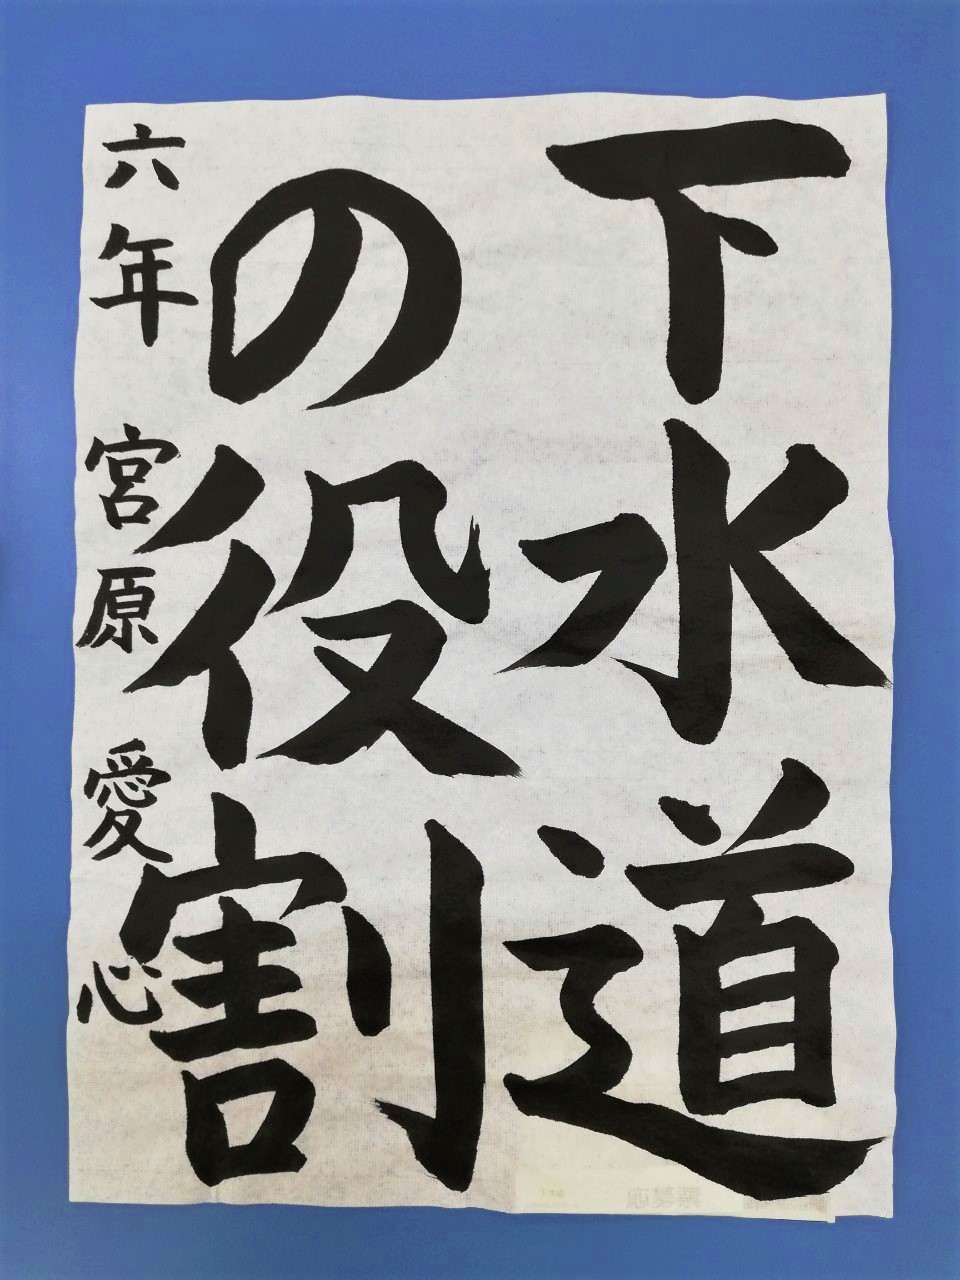 下水道
の役割
六年 宮原 愛心